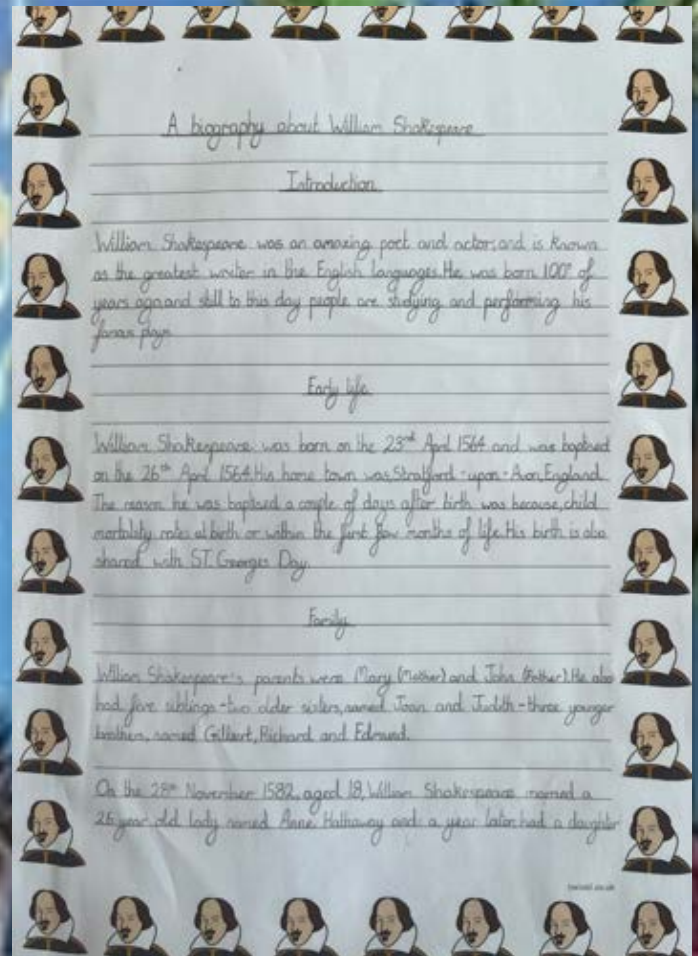 A biography about William Shakespeare
Introduction
William Shakespeare was an amazing poet and actor, and is known
as the greatest writer in the English languages. He was born 100s of
years ago and still to this day people are studying and performing his
famous plays
Early life
William Shakespeare was born on the 23rd April 1564 and was baptised
on the 26th April 1564. His home town was Stratford-upon-Avon, England.
The reason he was baptised a couple of days after birth was because, child
mortality rates at birth or within the first few months of life. His birth is also
shared with ST. Georges Day.
Family
William Shakespeare's parents were Mary (Mother) and John (Father). He also
had five siblings - two older sisters, named Joan and Judith - three younger
brothers, named Gilbert, Richard and Edmund.
On the 28th November 1582, aged 18, William Shakespeare married a
26 year old lady named Anne Hathaway and a year later had a daughter
twinkl.co.uk